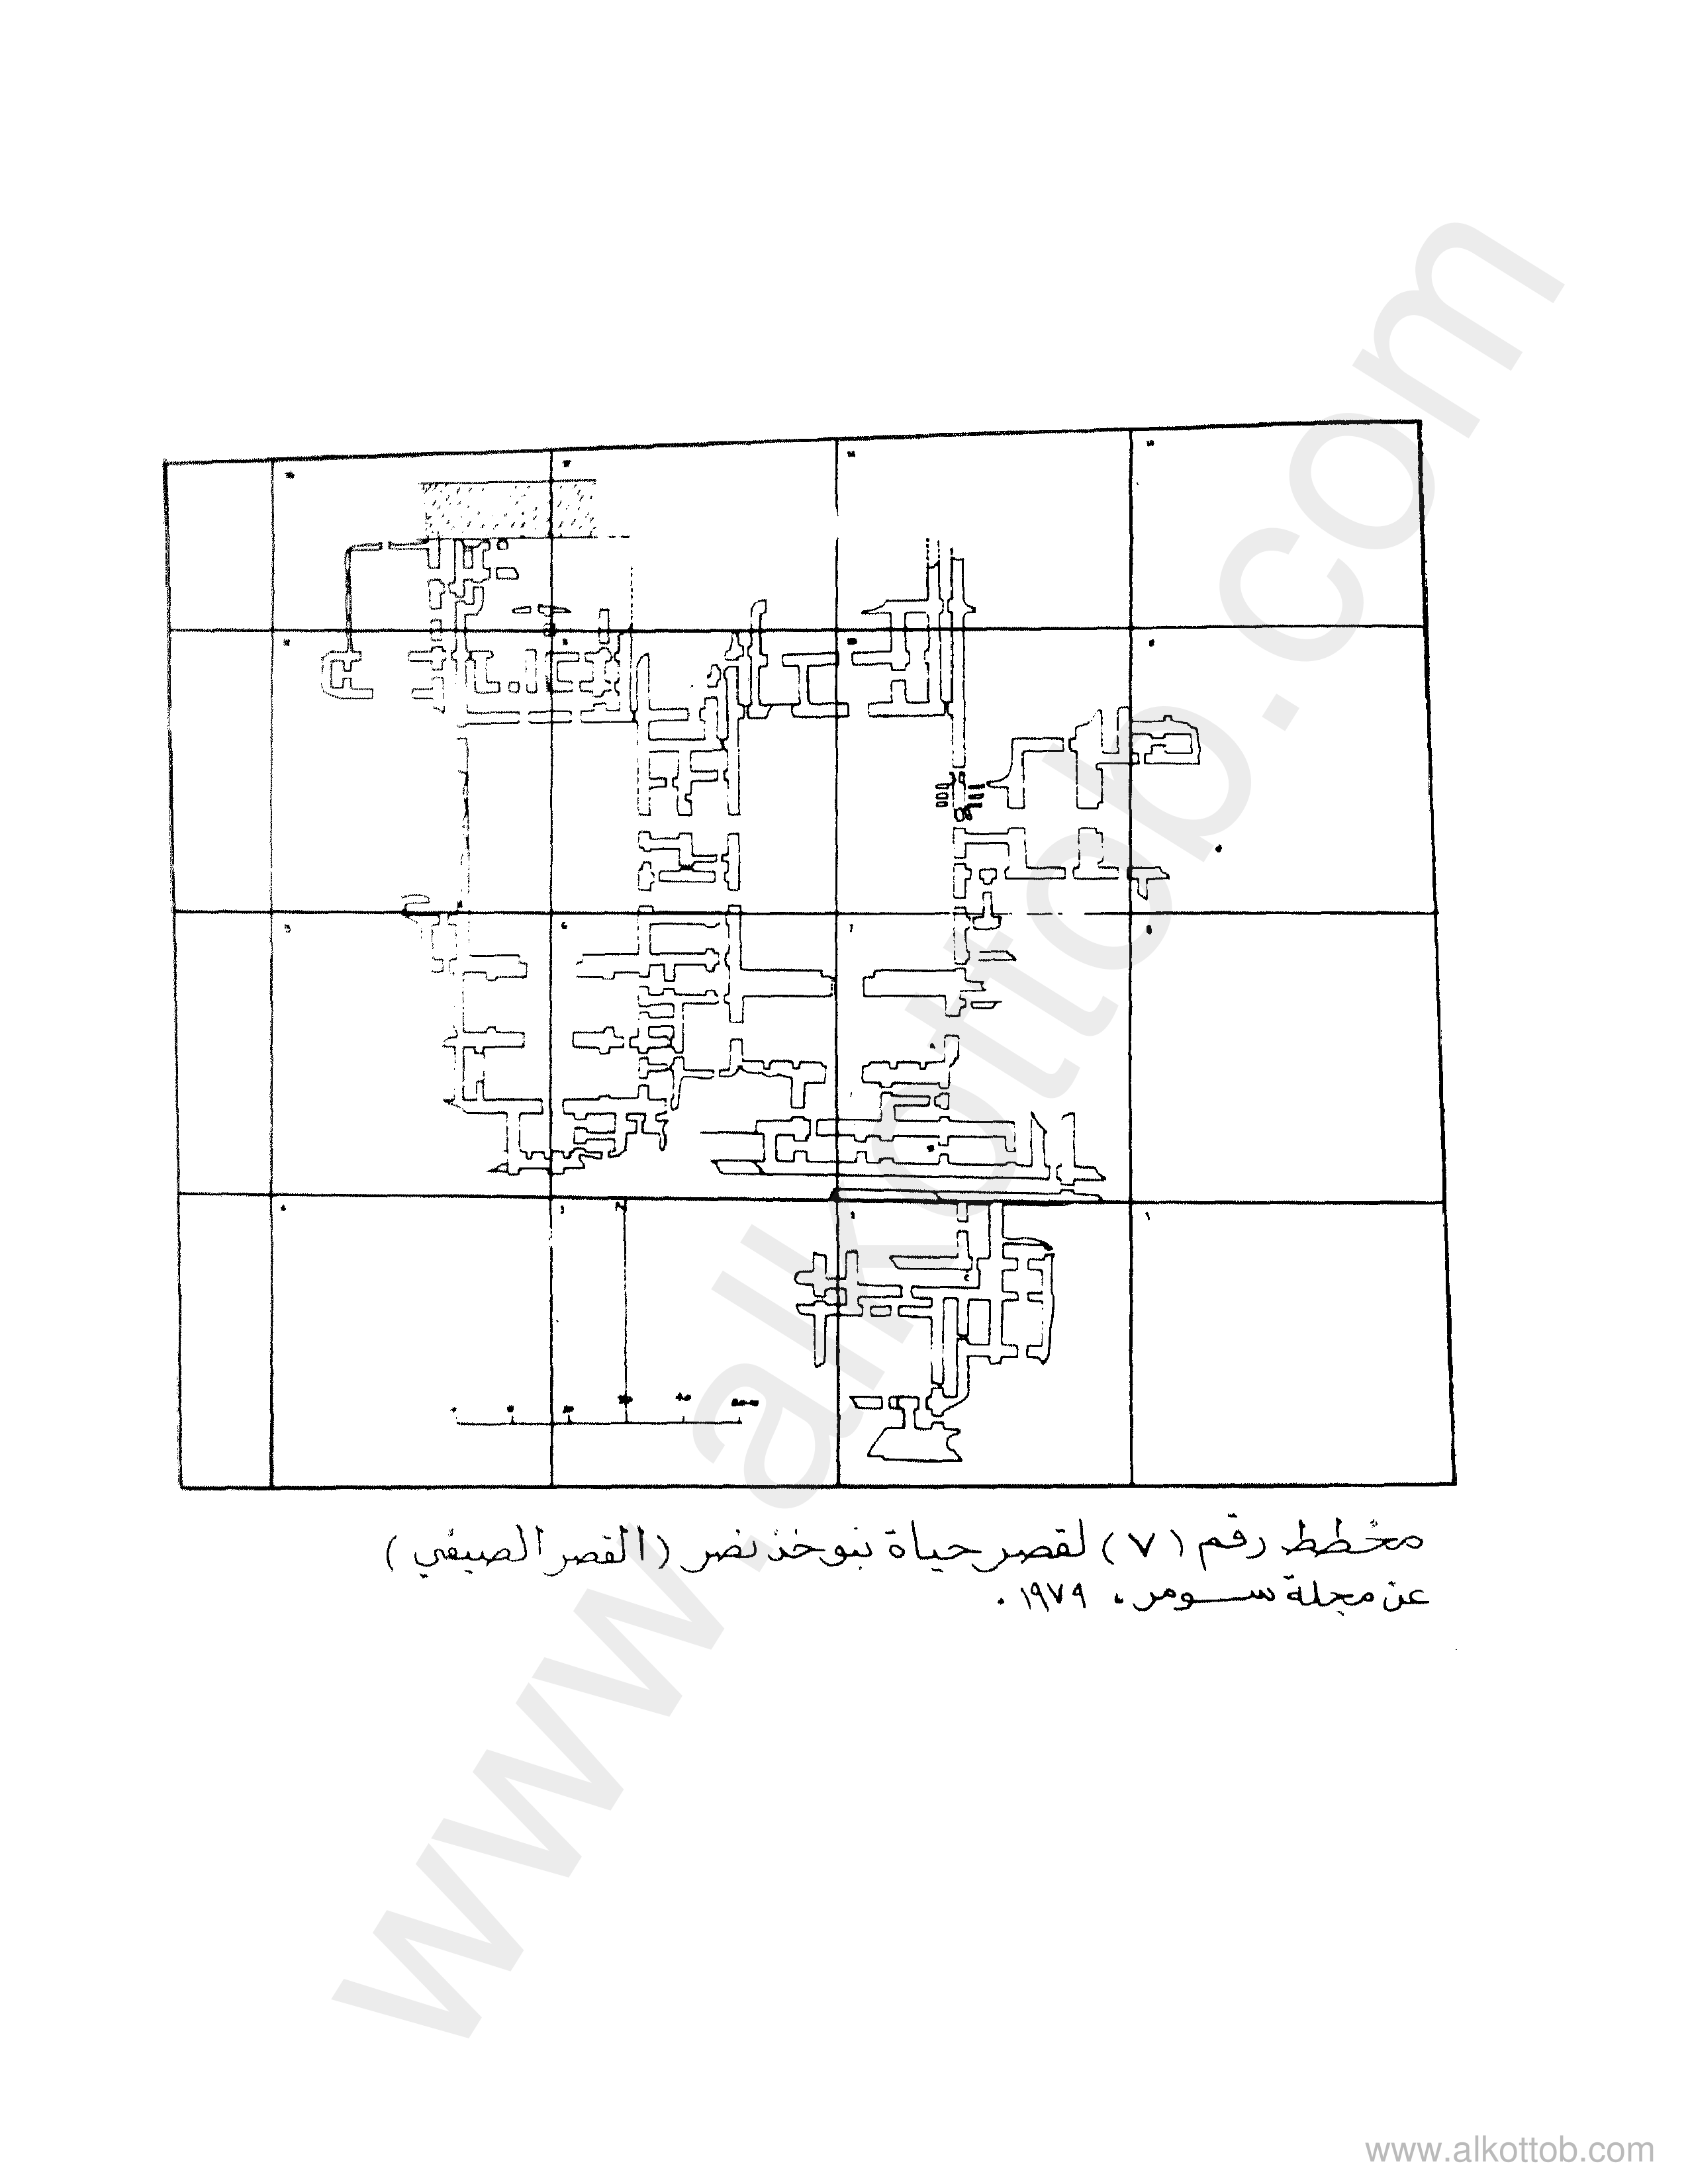 مخطط رقم (٧) لقصر حياة نبوخذ نصر (القصر الصيفي)
عن مجلة سومر، ١٩٧٩.
www.alkottob.com
www.alkottob.com